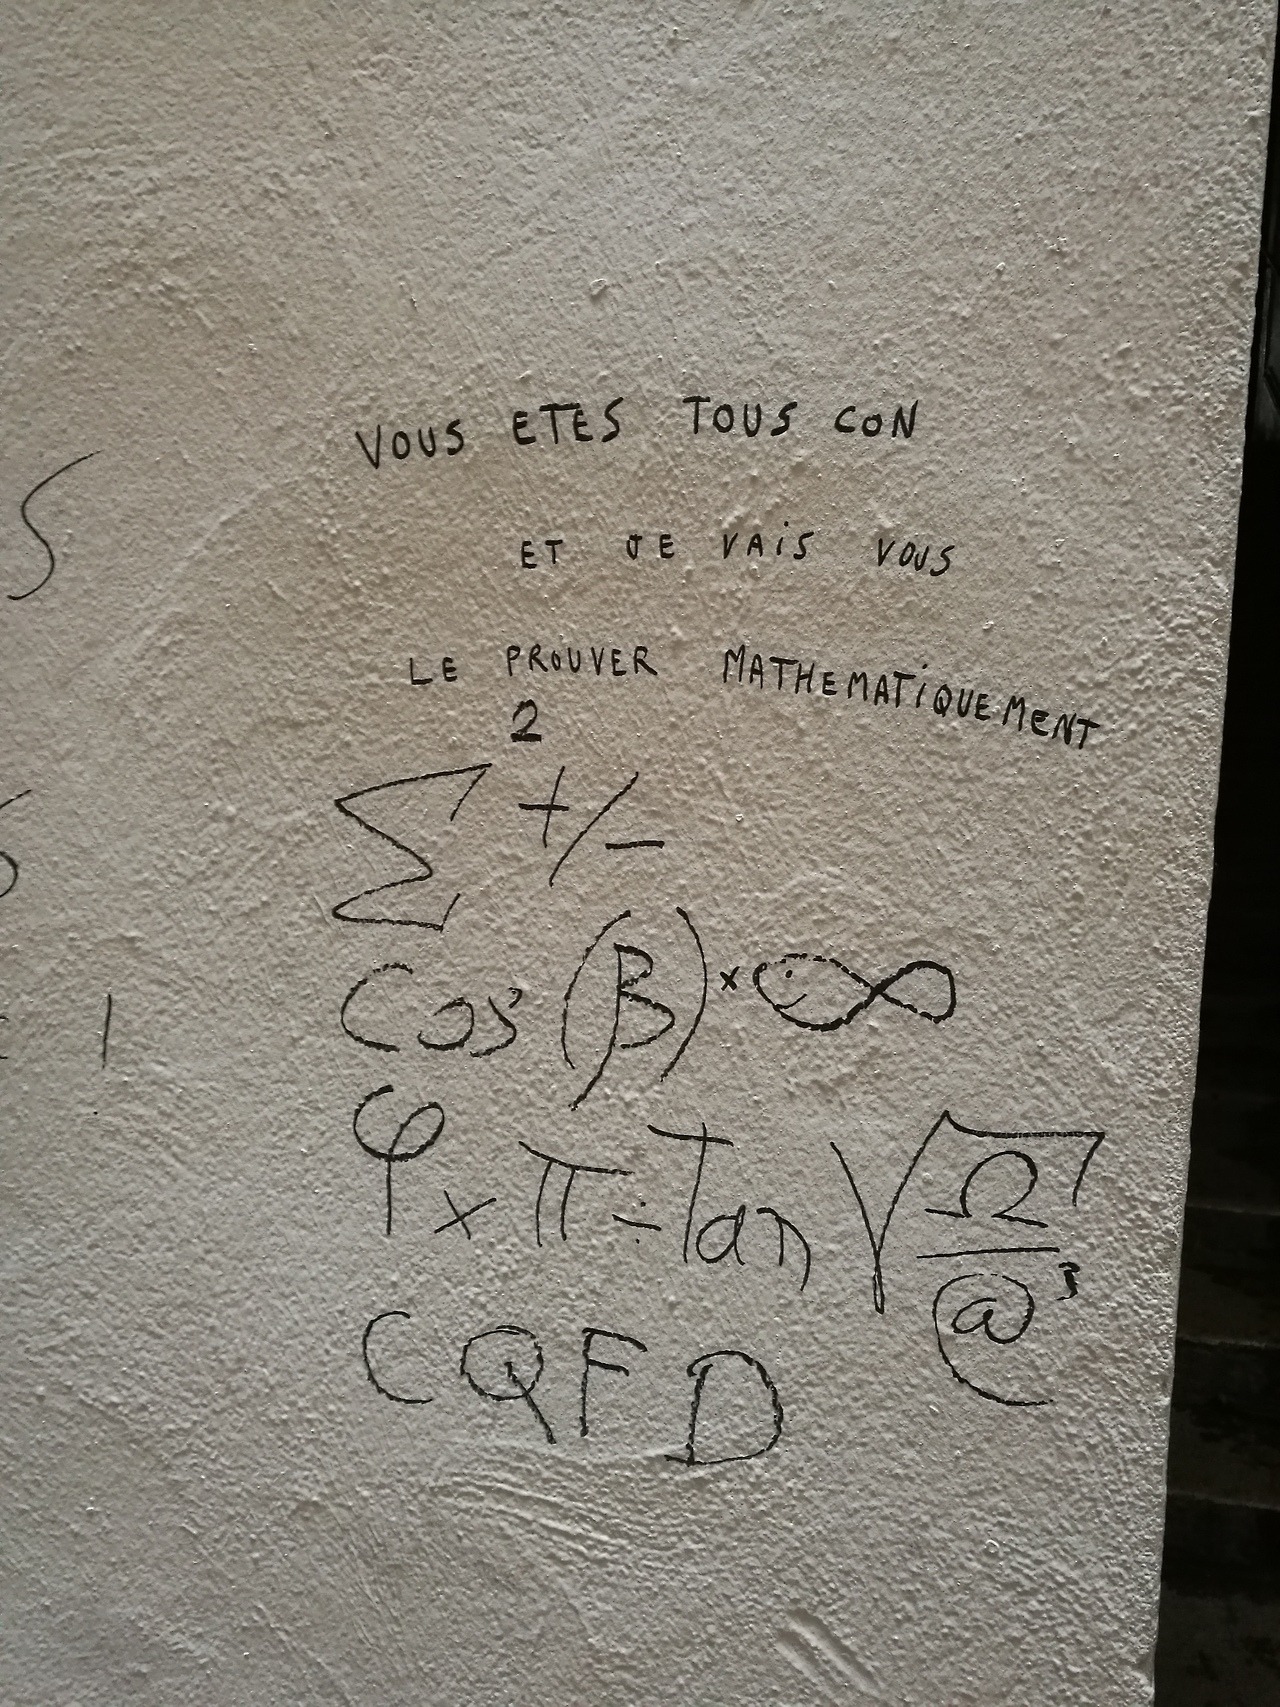 VOUS ETES TOUS CON
ET JE VAIS VOUS
LE PROUVER MATHEMATIQUEMENT
2
∑ +/-
Cos (β) x ∞
φ x π ÷ Tan √Ω/@³
CQFD